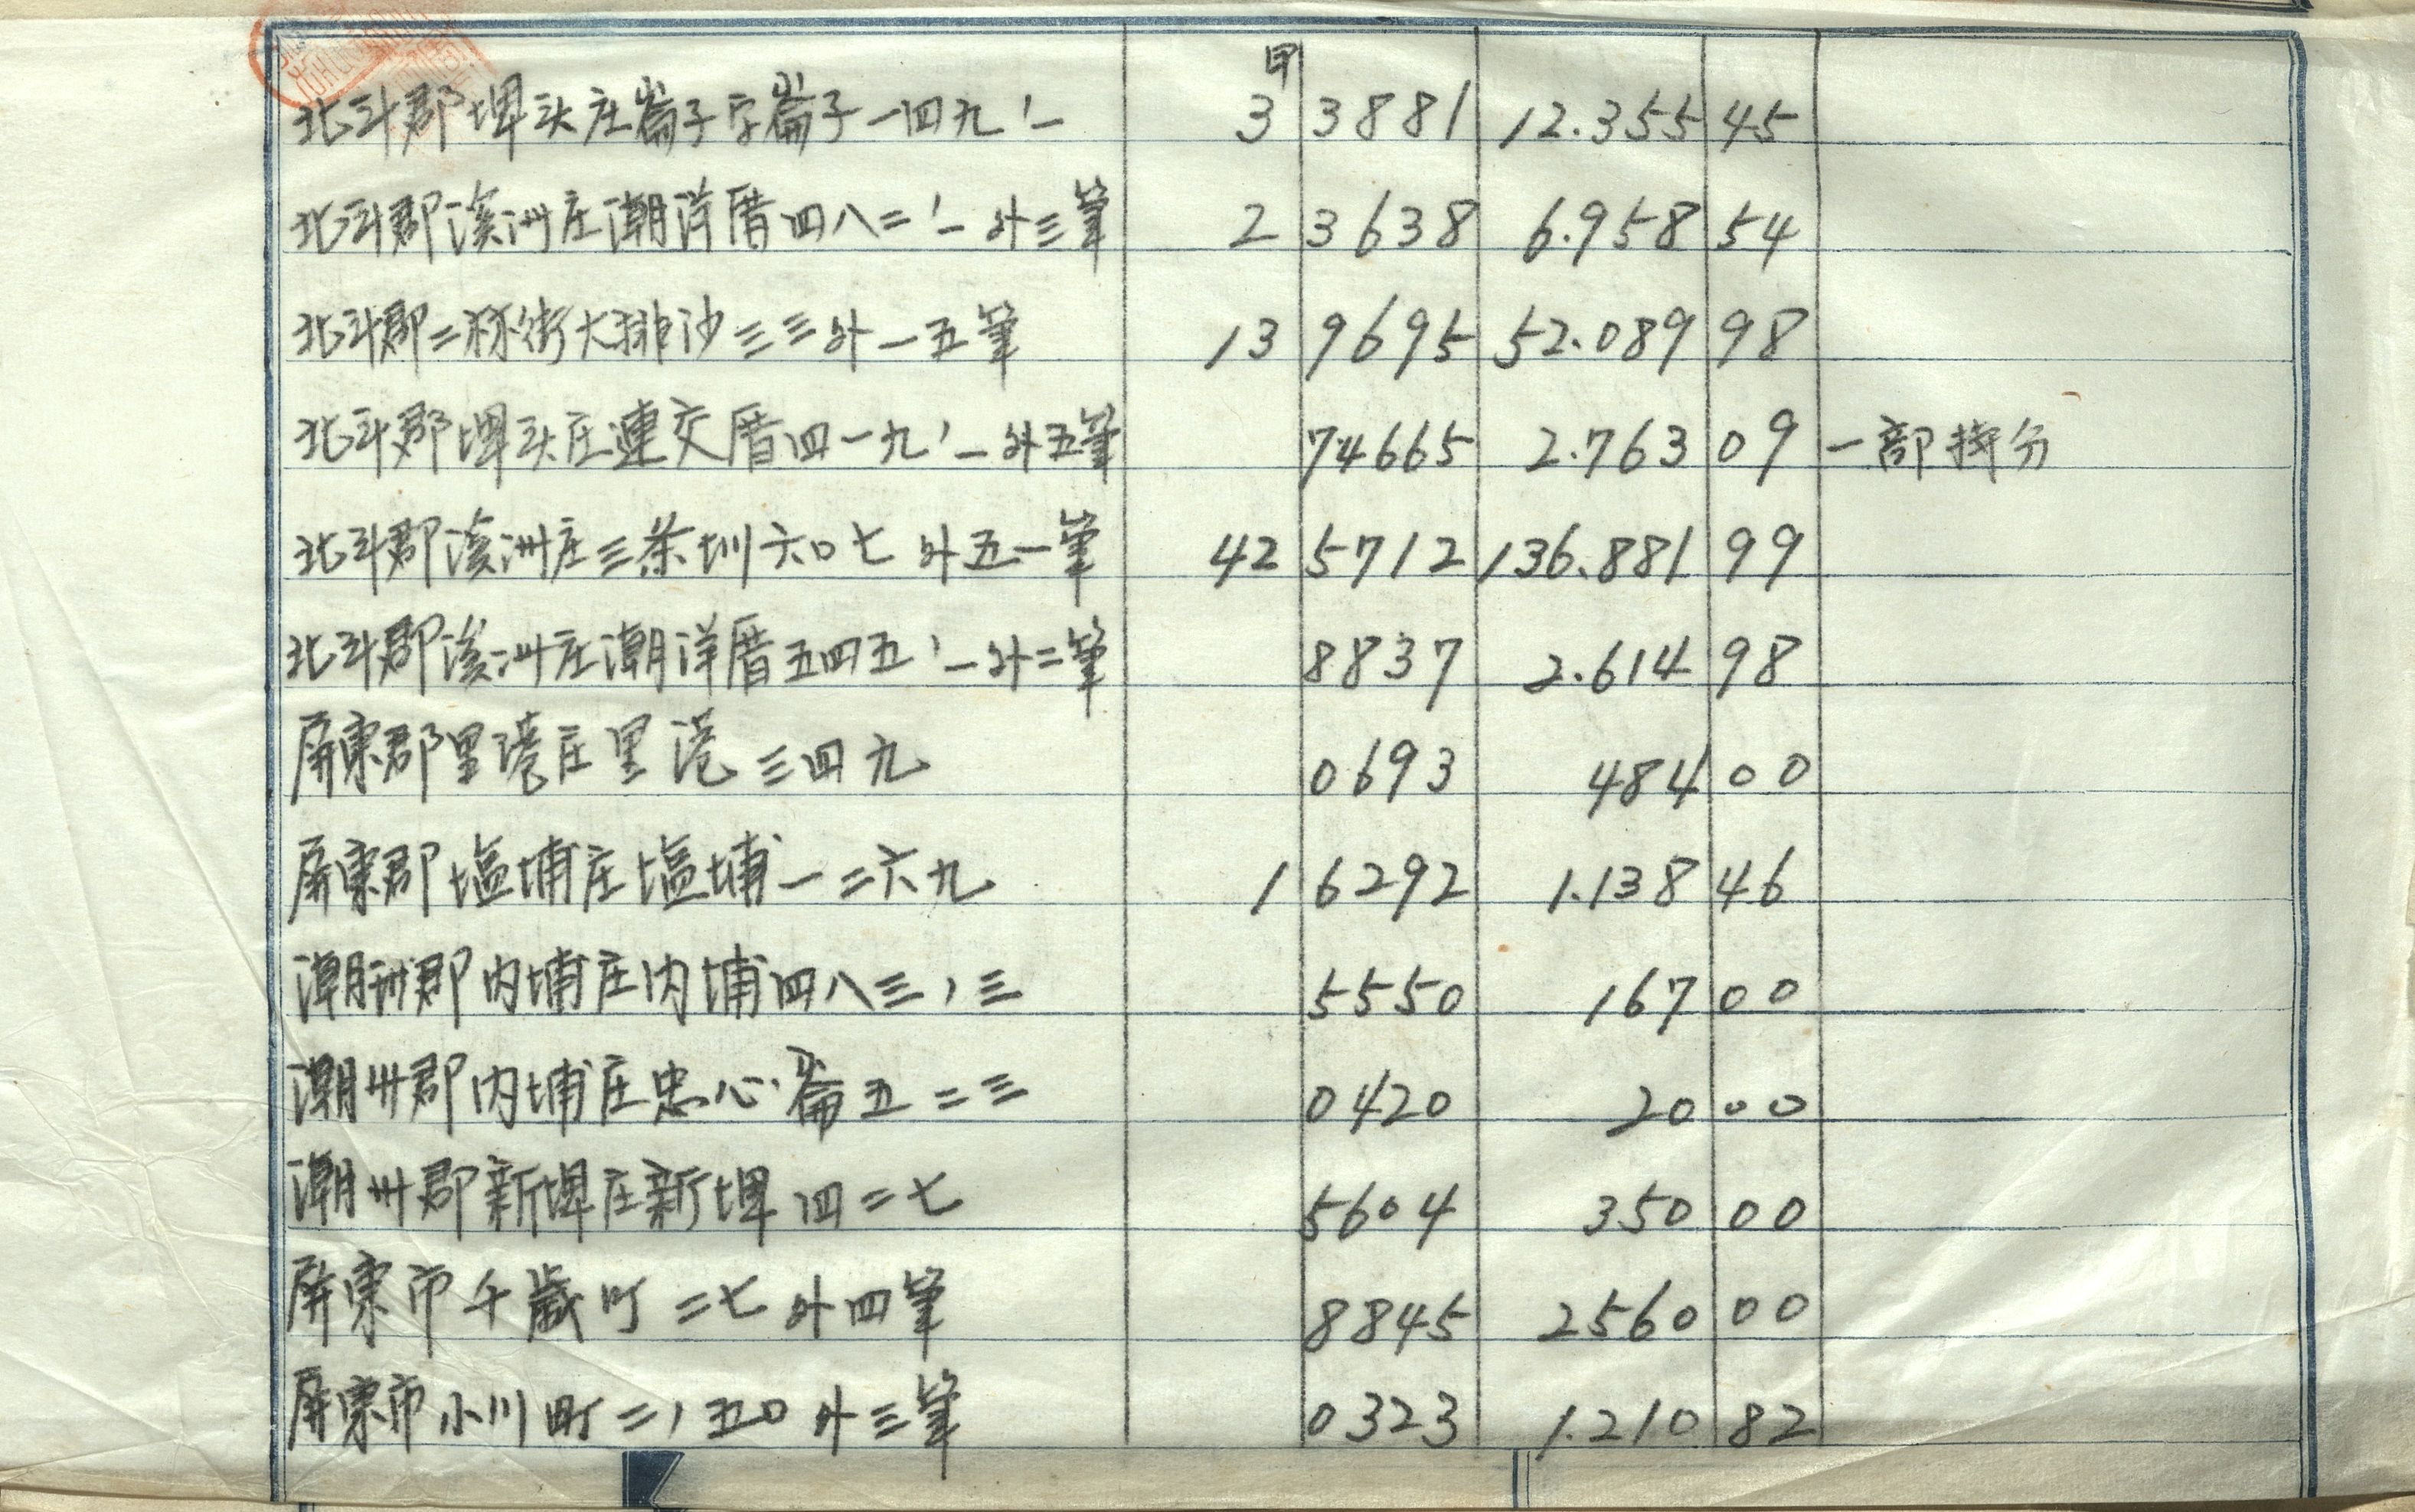 甲
北斗郡埤头庄崙子字崙子一四九ノ一 3 3881 12.355 45
北斗郡溪洲庄潮洋厝四八二ノ一外三筆 2 3638 6.958 54
北斗郡二林街大排沙三三外一五筆 13 9695 52.089 98
北斗郡埤头庄連交厝四一九ノ一外五筆 74665 2.763 09 一部持分
北斗郡溪洲庄三条圳六〇七外五一筆 42 5712 136.881 99
北斗郡溪洲庄潮洋厝五四五ノ一外二筆 8837 2.614 98
屏東郡里港庄里港三四九 0693 484 00
屏東郡塩埔庄塩埔一二六九 1 6292 1.138 46
潮州郡内埔庄内埔四八三ノ三 5550 167 00
潮州郡内埔庄忠心崙五二三 0420 20 00
潮州郡新埤庄新埤四二七 5604 350 00
屏東市千歳町二七外四筆 8845 2560 00
屏東市小川町二ノ五〇外三筆 0323 1.210 82